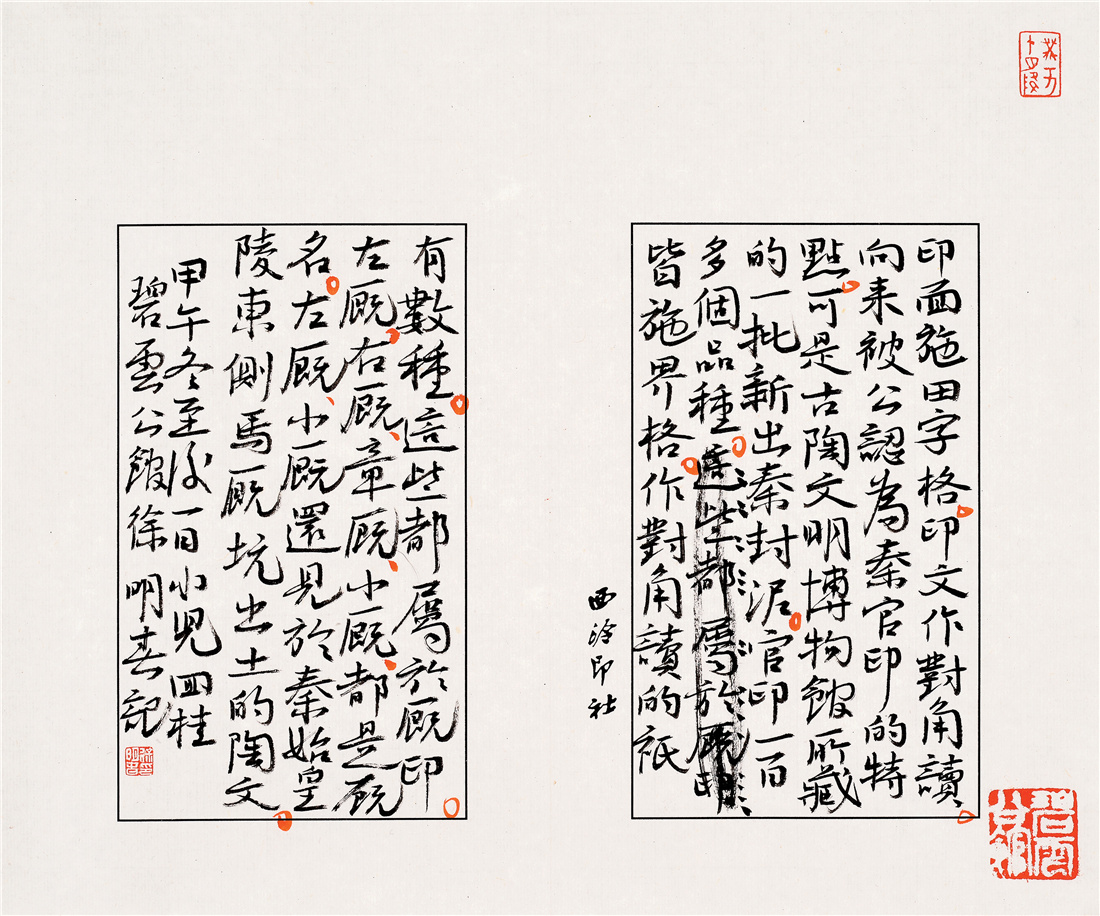 印面施田字格印文作對角讀
向来被公認為秦官印的特
點可是古陶文明博物館所藏
的一批新出秦封泥官印一百
多個品種這些都屬於厩印
皆施界格作對角讀的祇
西泠印社
有數種這些都屬於厩印
左厩右厩章厩小厩都是厩
名左厩小厩還見於秦始皇
陵東側馬厩坑出土的陶文
甲午冬至後一日小兒回桂
碧雲公館徐明春記